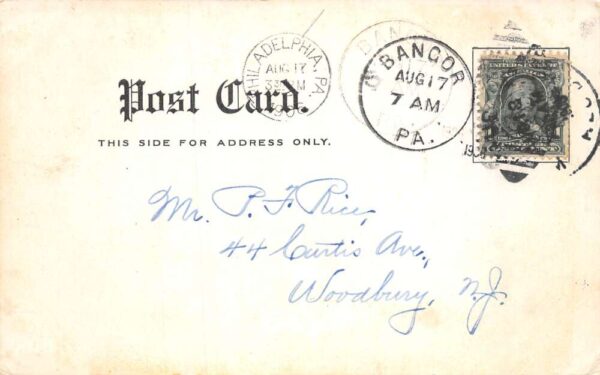 PHILADELPHIA, PA.
AUG 17
BANGOR
AUG 17
7 AM
PA.
UNITED STATES
Post Card.
THIS SIDE FOR ADDRESS ONLY.
Mr. P. F. Rice,
44 Curtis Ave.,
Woodbury, N.J.